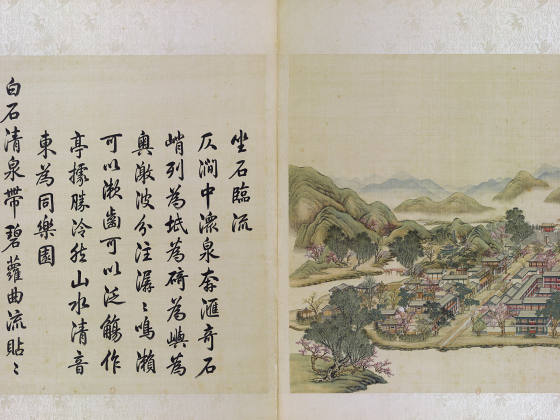 坐石臨流
仄澗中潨泉奔滙奇石
峭列為坻為碕為嶼為
奧激波分注潺〻鳴瀨
可以漱齒可以泛觴作
亭據勝泠然山水清音
東為同樂園
白石清泉帶碧蘿曲流貼〻